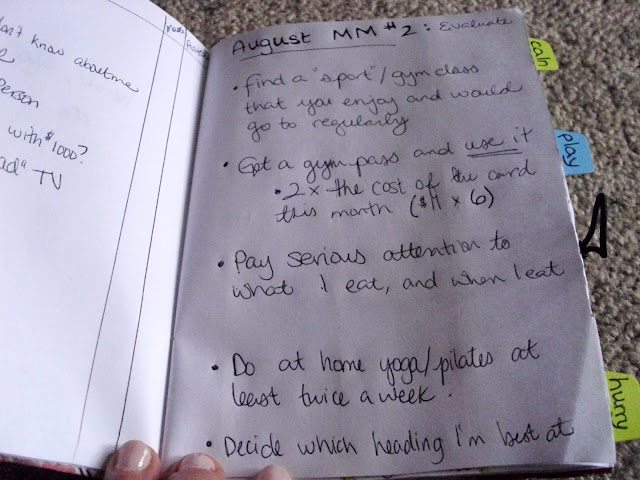 don't know about me
Person
with $1000?
TV
August MM #2: Evaluate
• find a "sport"/gym class
that you enjoy and would
go to regularly
• Get a gym pass and use it
• 2x the cost of the card
this month ($11 x 6)
• Pay serious attention to
what I eat, and when I eat
• Do at home yoga/pilates at
least twice a week.
• Decide which heading I'm best at
calm
play
hurry